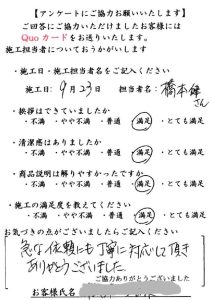 【アンケートにご協力お願いいたします】
ご回答にご協力いただけましたお客様には
Quo カードをお送りいたします。
施工担当者についておうかがいします
・施工日・施工担当者名をご記入ください
施工日: 9月 23日 担当者名: 橋本 さん
・挨拶はできていましたか
・不満 ・やや不満 ・普通 ・満足 ・とても満足
・清潔感はありましたか
・不満 ・やや不満 ・普通 ・満足 ・とても満足
・商品説明は解りやすかったですか
・不満 ・やや不満 ・普通 ・満足 ・とても満足
・施工の満足度を教えてください
・不満 ・やや不満 ・普通 ・満足 ・とても満足
お気づきの点がございましたらご記入ください
急な依頼にも丁寧に対応して頂き
ありがとうございました。
ご協力ありがとうございました
お客様氏名